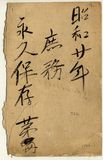 昭和廿年
庶務
永久保存